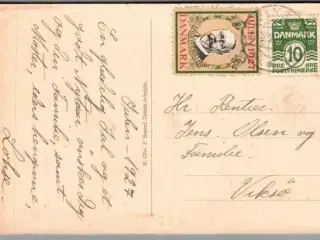 JULEN 1927
DANMARK
DANMARK
10
ØRE ØRE
POSTFRIMÆRKE
Julen 1927.
En glædelig Jul og et
godt Nytaar ønskes Dig
og din Familie, samt
Moder, eders hengivne,
Hr. Rentier
Jens Olsen og
Familie.
Viksø